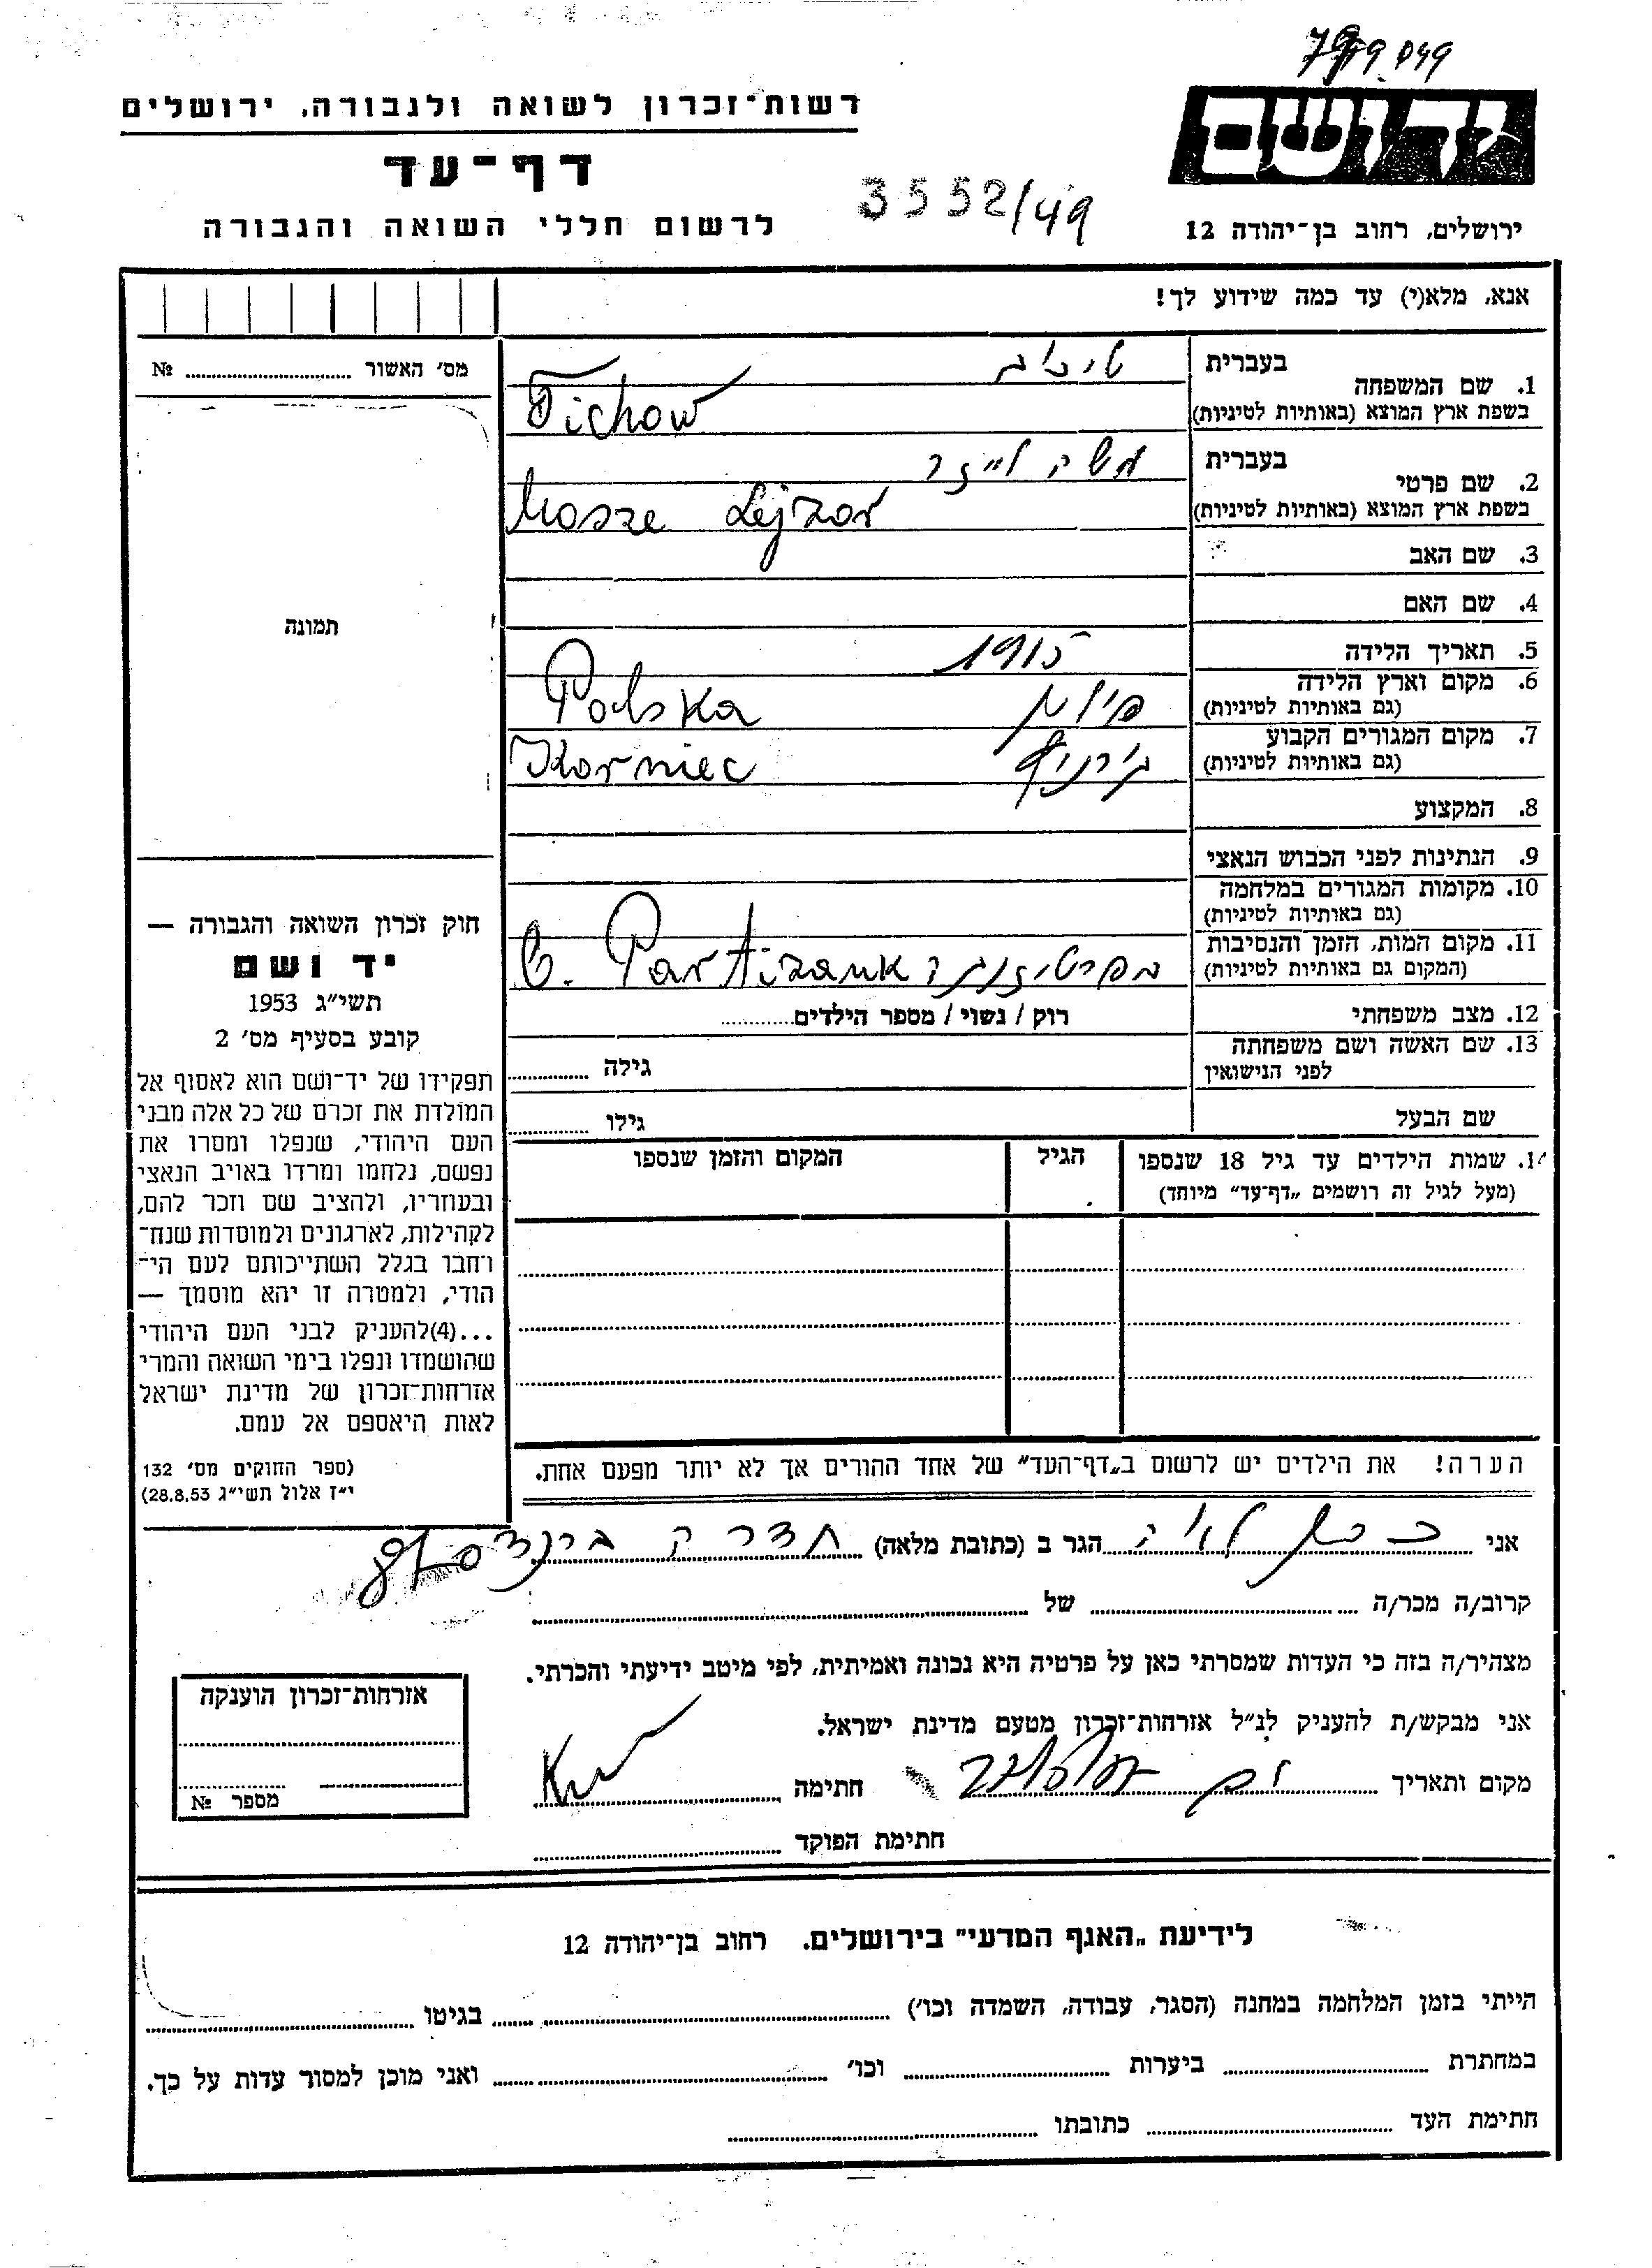 יד ושם
ירושלים, רחוב בן־יהודה 12
רשות־זכרון לשואה ולגבורה, ירושלים
דף־עד
לרשום חללי השואה והגבורה
3552/49
אנא, מלא(י) עד כמה שידוע לך!
מס׳ האשור № ..........
תמונה
1. שם המשפחה
בעברית
בשפת ארץ המוצא (באותיות לטיניות) Tichow
2. שם פרטי
בעברית משה לייזר
בשפת ארץ המוצא (באותיות לטיניות) Mosze Lejzor
3. שם האב
4. שם האם
5. תאריך הלידה 1915
6. מקום וארץ הלידה
(גם באותיות לטיניות) פולין Polska
7. מקום המגורים הקבוע
(גם באותיות לטיניות) Korniec
8. המקצוע
9. הנתינות לפני הכבוש הנאצי
10. מקומות המגורים במלחמה
(גם באותיות לטיניות)
11. מקום המות, הזמן והנסיבות
(המקום גם באותיות לטיניות)
12. מצב משפחתי רוק / נשוי / מספר הילדים..........
13. שם האשה ושם משפחתה
לפני הנישואין גילה ..........
שם הבעל גילו ..........
14. שמות הילדים עד גיל 18 שנספו הגיל המקום והזמן שנספו
(מעל לגיל זה רושמים „דף־עד״ מיוחד)
חוק זכרון השואה והגבורה —
יד ושם
תשי״ג 1953
קובע בסעיף מס׳ 2
תפקידו של יד־ושם הוא לאסוף אל
המולדת את זכרם של כל אלה מבני
העם היהודי, שנפלו ומסרו את
נפשם, נלחמו ומרדו באויב הנאצי
ובעוזריו, ולהציב שם וזכר להם,
לקהילות, לארגונים ולמוסדות שנח־
רחבו בגלל השתייכותם לעם הי־
הודי, ולמטרה זו יהא מוסמך —
...(4)להעניק לבני העם היהודי
שהושמדו ונפלו בימי השואה והמרי
אזרחות־זכרון של מדינת ישראל
לאות היאספם אל עמם.
(ספר החוקים מס׳ 132
י״ז אלול תשי״ג 28.8.53)
הערה! את הילדים יש לרשום ב„דף־העד״ של אחד ההורים אך לא יותר מפעם אחת.
אני .......... הגר ב (כתובת מלאה) ..........
קרוב/ה מכר/ה .......... של ..........
מצהיר/ה בזה כי העדות שמסרתי כאן על פרטיה היא נכונה ואמיתית, לפי מיטב ידיעתי והכרתי.
אני מבקש/ת להעניק לנ״ל אזרחות־זכרון מטעם מדינת ישראל.
מקום ותאריך .......... חתימה ..........
חתימת הפוקד ..........
אזרחות־זכרון הוענקה
מספר №
לידיעת „האגף המדעי״ בירושלים. רחוב בן־יהודה 12
הייתי בזמן המלחמה במחנה (הסגר, עבודה, השמדה וכו׳) .......... בגיטו ..........
במחתרת .......... ביערות .......... וכו׳ .......... ואני מוכן למסור עדות על כך.
חתימת העד .......... כתובתו ..........